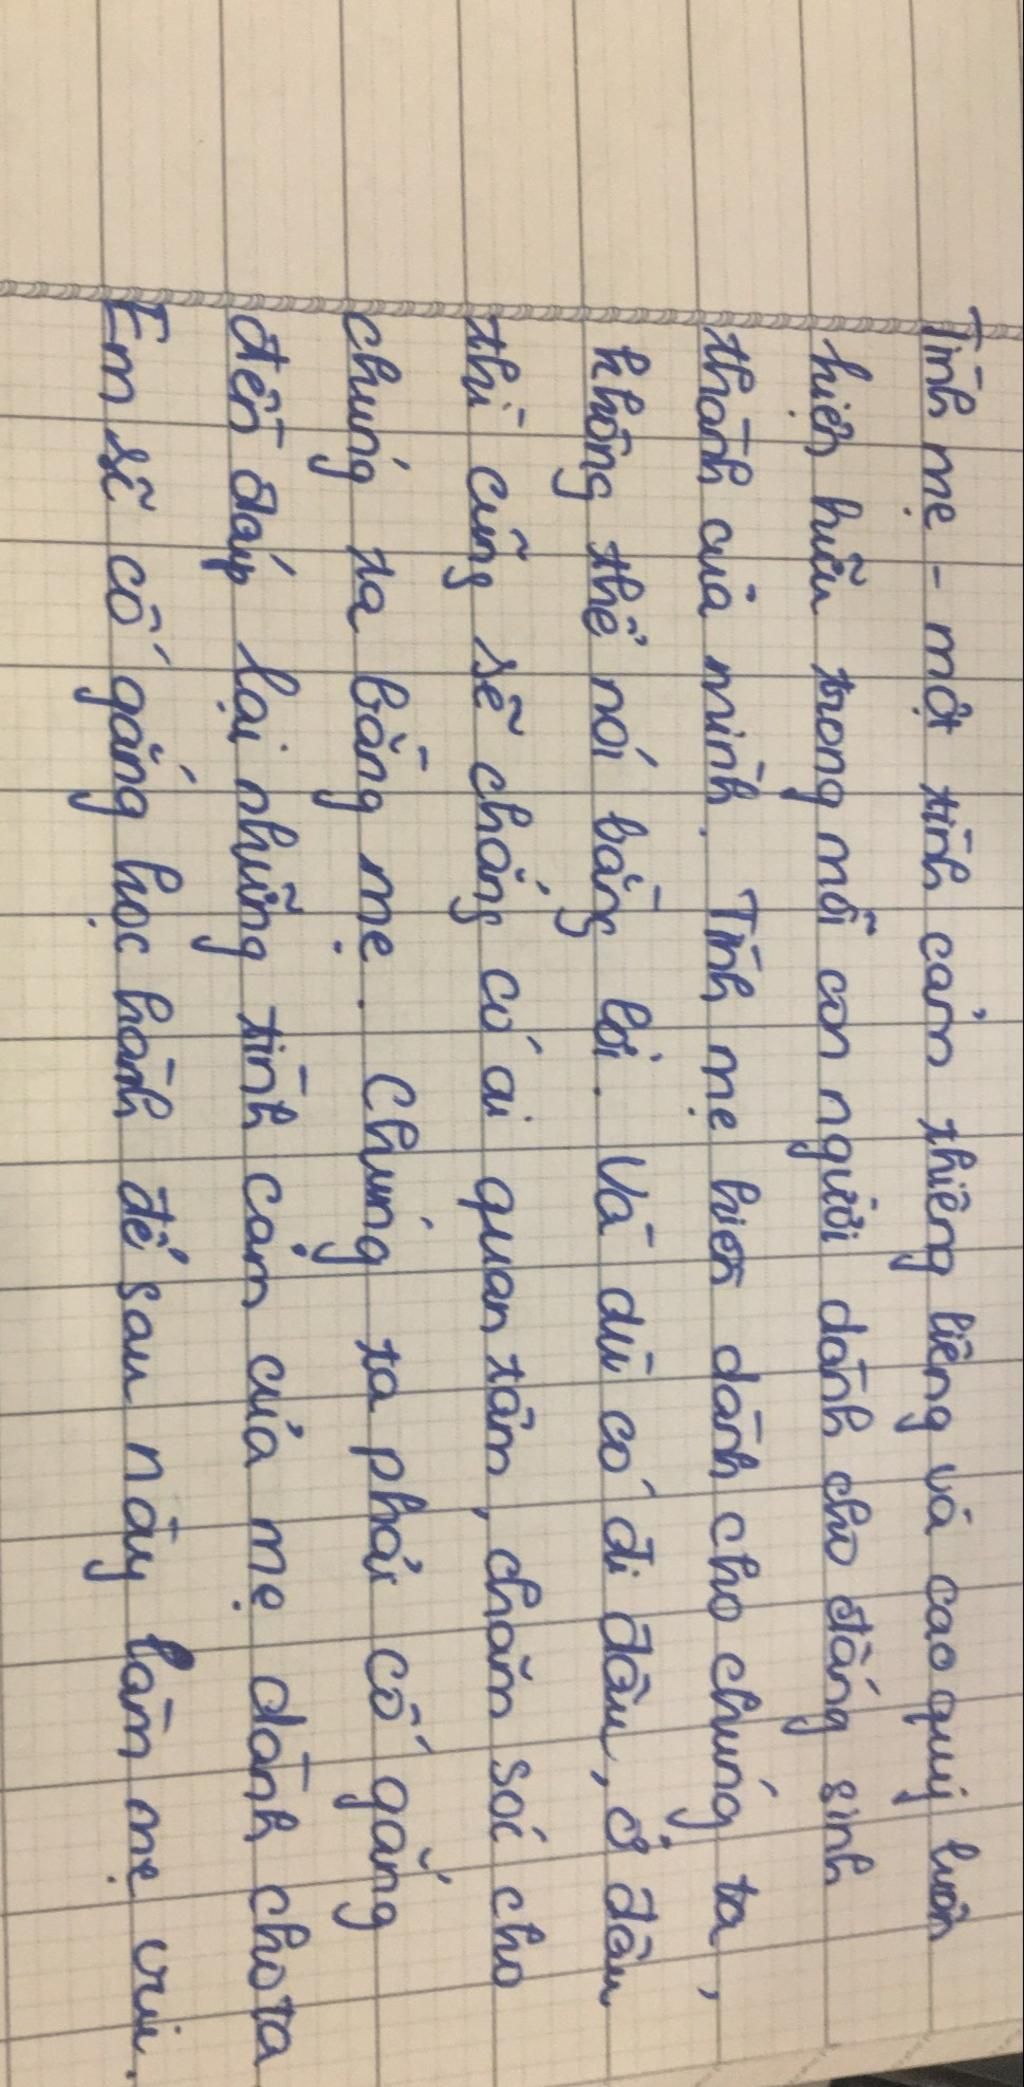 Tình mẹ - một tình cảm thiêng liêng và cao quý luôn
hiện hữu trong mỗi con người dành cho đấng sinh
thành của mình. Tình mẹ hiền dành cho chúng ta,
không thể nói bằng lời. Và dù có đi đâu, ở đâu
thì cũng sẽ chẳng có ai quan tâm, chăm sóc cho
chúng ta bằng mẹ. Chúng ta phải cố gắng
đền đáp lại những tình cảm của mẹ dành cho ta
Em sẽ cố gắng học hành để sau này làm mẹ vui.